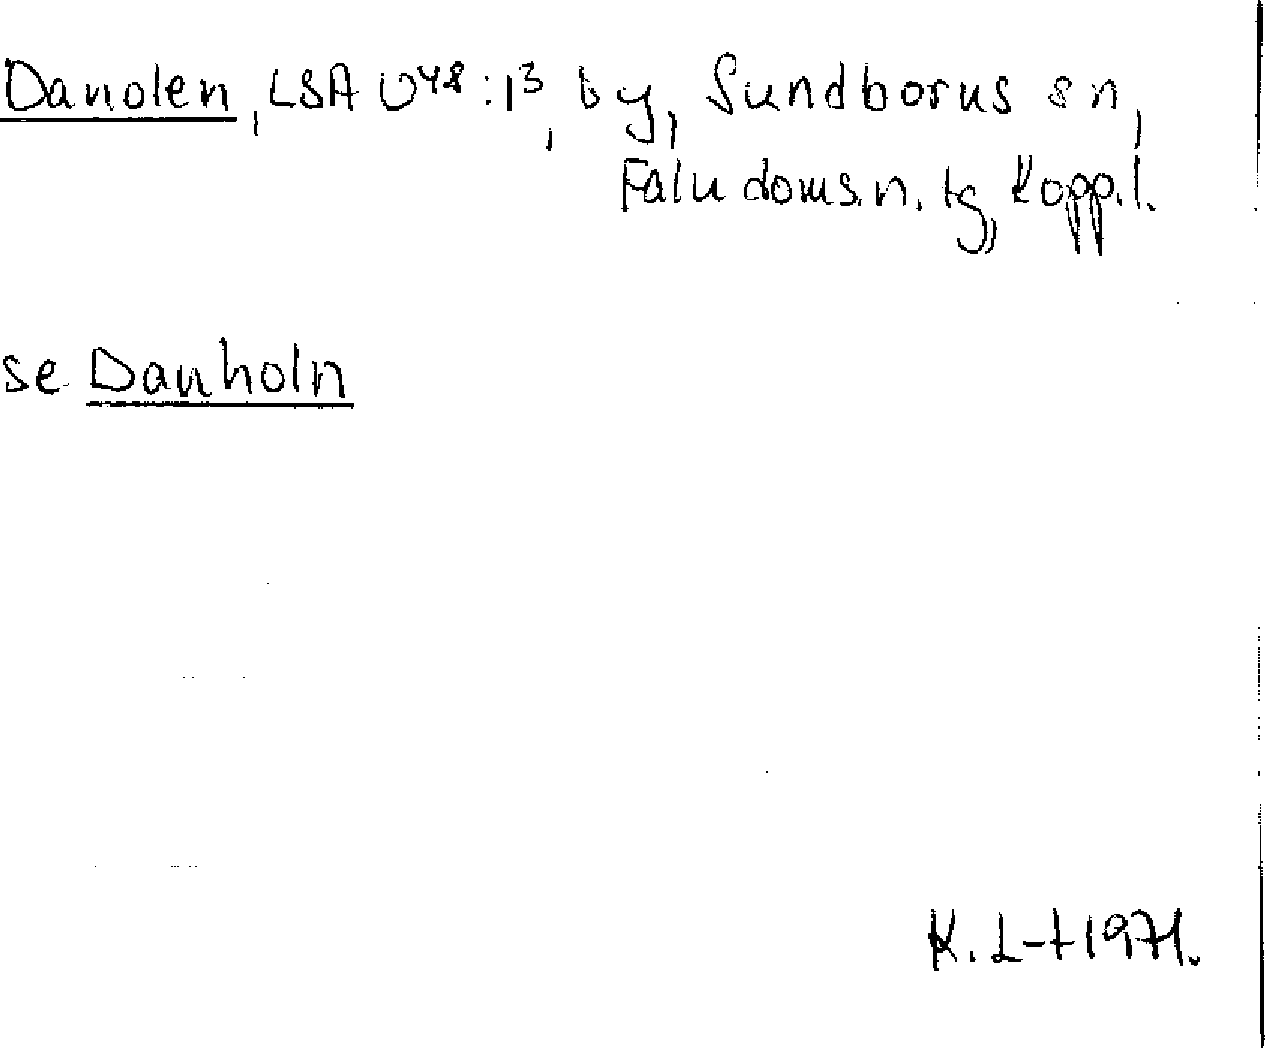 Danolen, LSA U48:13, by, Sundborns sn,
Falu doms.n. tg, Kopp.l.
se Danholn
K. L-t 1971.